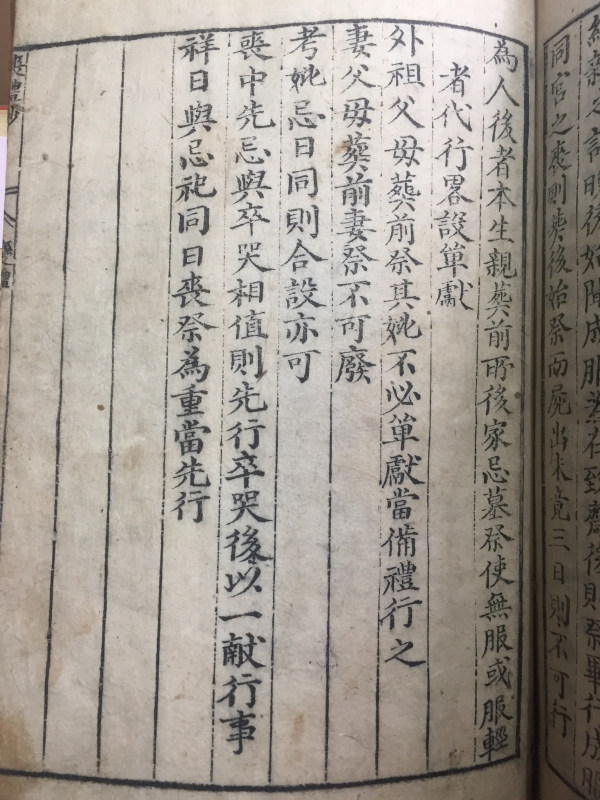 同宮之喪則葬後始祭而屍出未竟三日則不可行
為人後者本生親葬前所後家忌墓祭使無服或服輕
者代行畧設單獻
外祖父母葬前祭其妣不必單獻當備禮行之
妻父母葬前妻祭不可廢
考妣忌日同則合設亦可
喪中先忌與卒哭相值則先行卒哭後以一献行事
祥日與忌祀同日喪祭為重當先行